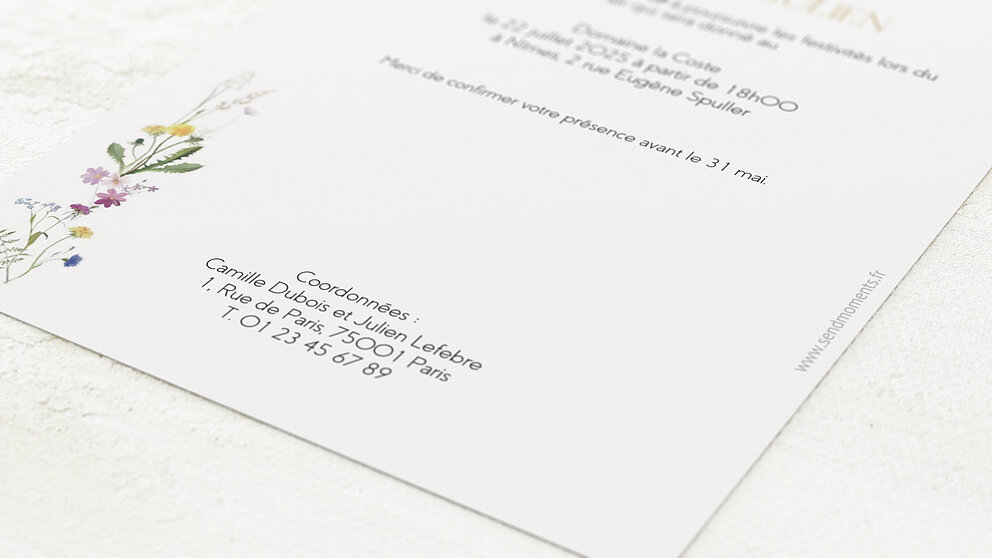 JULIEN
à poursuivre les festivités lors du
qui sera donné au
Domaine la Coste
le 22 juillet 2025 à partir de 18h00
à Nîmes, 2 rue Eugène Spuller
Merci de confirmer votre présence avant le 31 mai.
Coordonnées :
Camille Dubois et Julien Lefebre
1, Rue de Paris, 75001 Paris
T. 01 23 45 67 89
www.sendmoments.fr